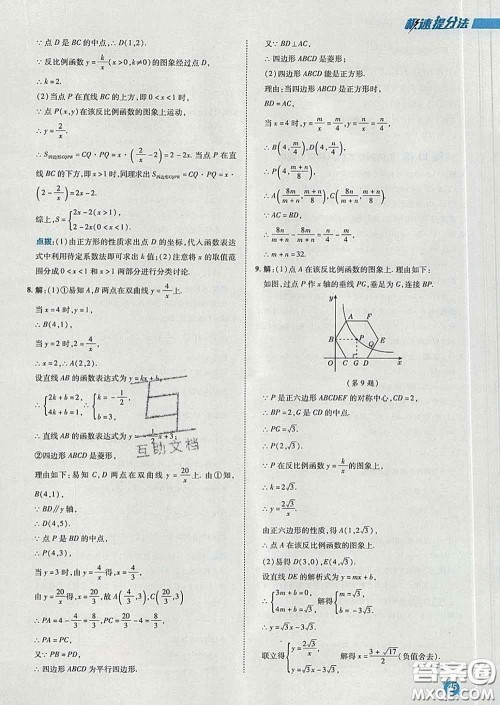 极速提分法
∵点 D 是 BC 的中点,∴D(1,2).
∵反比例函数 y=k/x(x>0,k≠0)的图象经过点 D,
∴k=2.
(2)当点 P 在直线 BC 的上方,即 0<x<1 时,
∵点 P(x,y)在该反比例函数的图象上运动,
∴y=2/x.
∴S四边形CQPR=CQ·PQ=x·(2/x-2)=2-2x. 当点 P 在直
线 BC 的下方,即 x>1 时,同理求出 S四边形CQPR=CQ·PQ=x·
(2-2/x)=2x-2.
综上,S={2x-2(x>1),
2-2x(0<x<1).
点拨:(1)由正方形的性质求出点 D 的坐标,代入函数表达
式中利用待定系数法即可求出 k 值;(2)注意将 x 的取值范
围分成 0<x<1 和 x>1 两部分进行分类讨论.
8.解:(1)①易知 A,B 两点在双曲线 y=4/x 上.
当 x=4 时,y=1,
∴B(4,1).
当 y=2 时,
∴2=4/x.
∴x=2,∴A(2,2).
设直线 AB 的函数表达式为 y=kx+b,
∴{2k+b=2, ∴{k=-1/2,
4k+b=1, b=3.
∴直线 AB 的函数表达式为 y=-1/2x+3;
②四边形 ABCD 是菱形.
理由如下:易知 C,D 两点在双曲线 y=20/x 上.
∵B(4,1),
∵BD∥y 轴,
∴D(4,5).
∵点 P 是 BD 的中点,
∴P(4,3).
当 y=3 时,由 y=4/x 得,x=4/3,
由 y=20/x 得,x=20/3,故 A(4/3,3),C(20/3,3).
∴PA=4-4/3=8/3,PC=20/3-4=8/3.
∴PA=PC.
又∵PB=PD,
∴四边形 ABCD 为平行四边形.
又∵BD⊥AC,
∴四边形 ABCD 是菱形;
(2)四边形 ABCD 能是正方形.
理由:当四边形 ABCD 是正方形时,
BD=AC,
当 x=4 时,y=m/x=m/4,y=n/x=n/4,
∴B(4,m/4),D(4,n/4).
∴P(4,(m+n)/8).
∴A(8m/(m+n),(m+n)/8),C(8n/(m+n),(m+n)/8).
∵AC=BD,
∴8n/(m+n)-8m/(m+n)=n/4-m/4.
∴m+n=32.
9.解:(1)点 A 在该反比例函数的图象上.理由如下:
如图,过点 P 作 x 轴的垂线 PG,垂足为 G,连接 BP.
y
A F
B P E
Q
O C G D x
(第 9 题)
∵P 是正六边形 ABCDEF 的对称中心,CD=2,
∴BP=2,G 是 CD 的中点.
∴PG=√3.
∴P(2,√3).
∵P 在反比例函数 y=k/x 的图象上,
∴k=2√3.
∴y=2√3/x.
由正六边形的性质,得 A(1,2√3),
∴点 A 在该反比例函数的图象上.
(2)易得 D(3,0),E(4,√3),
设直线 DE 的解析式为 y=mx+b,
∴{3m+b=0, ∴{m=√3,
4m+b=√3, b=-3√3.
∴y=√3x-3√3.
联立得{y=2√3/x, 解得 x=(3+√17)/2(负值舍去).
y=√3x-3√3,
互助文档
45
答案圈
MXQE.COM